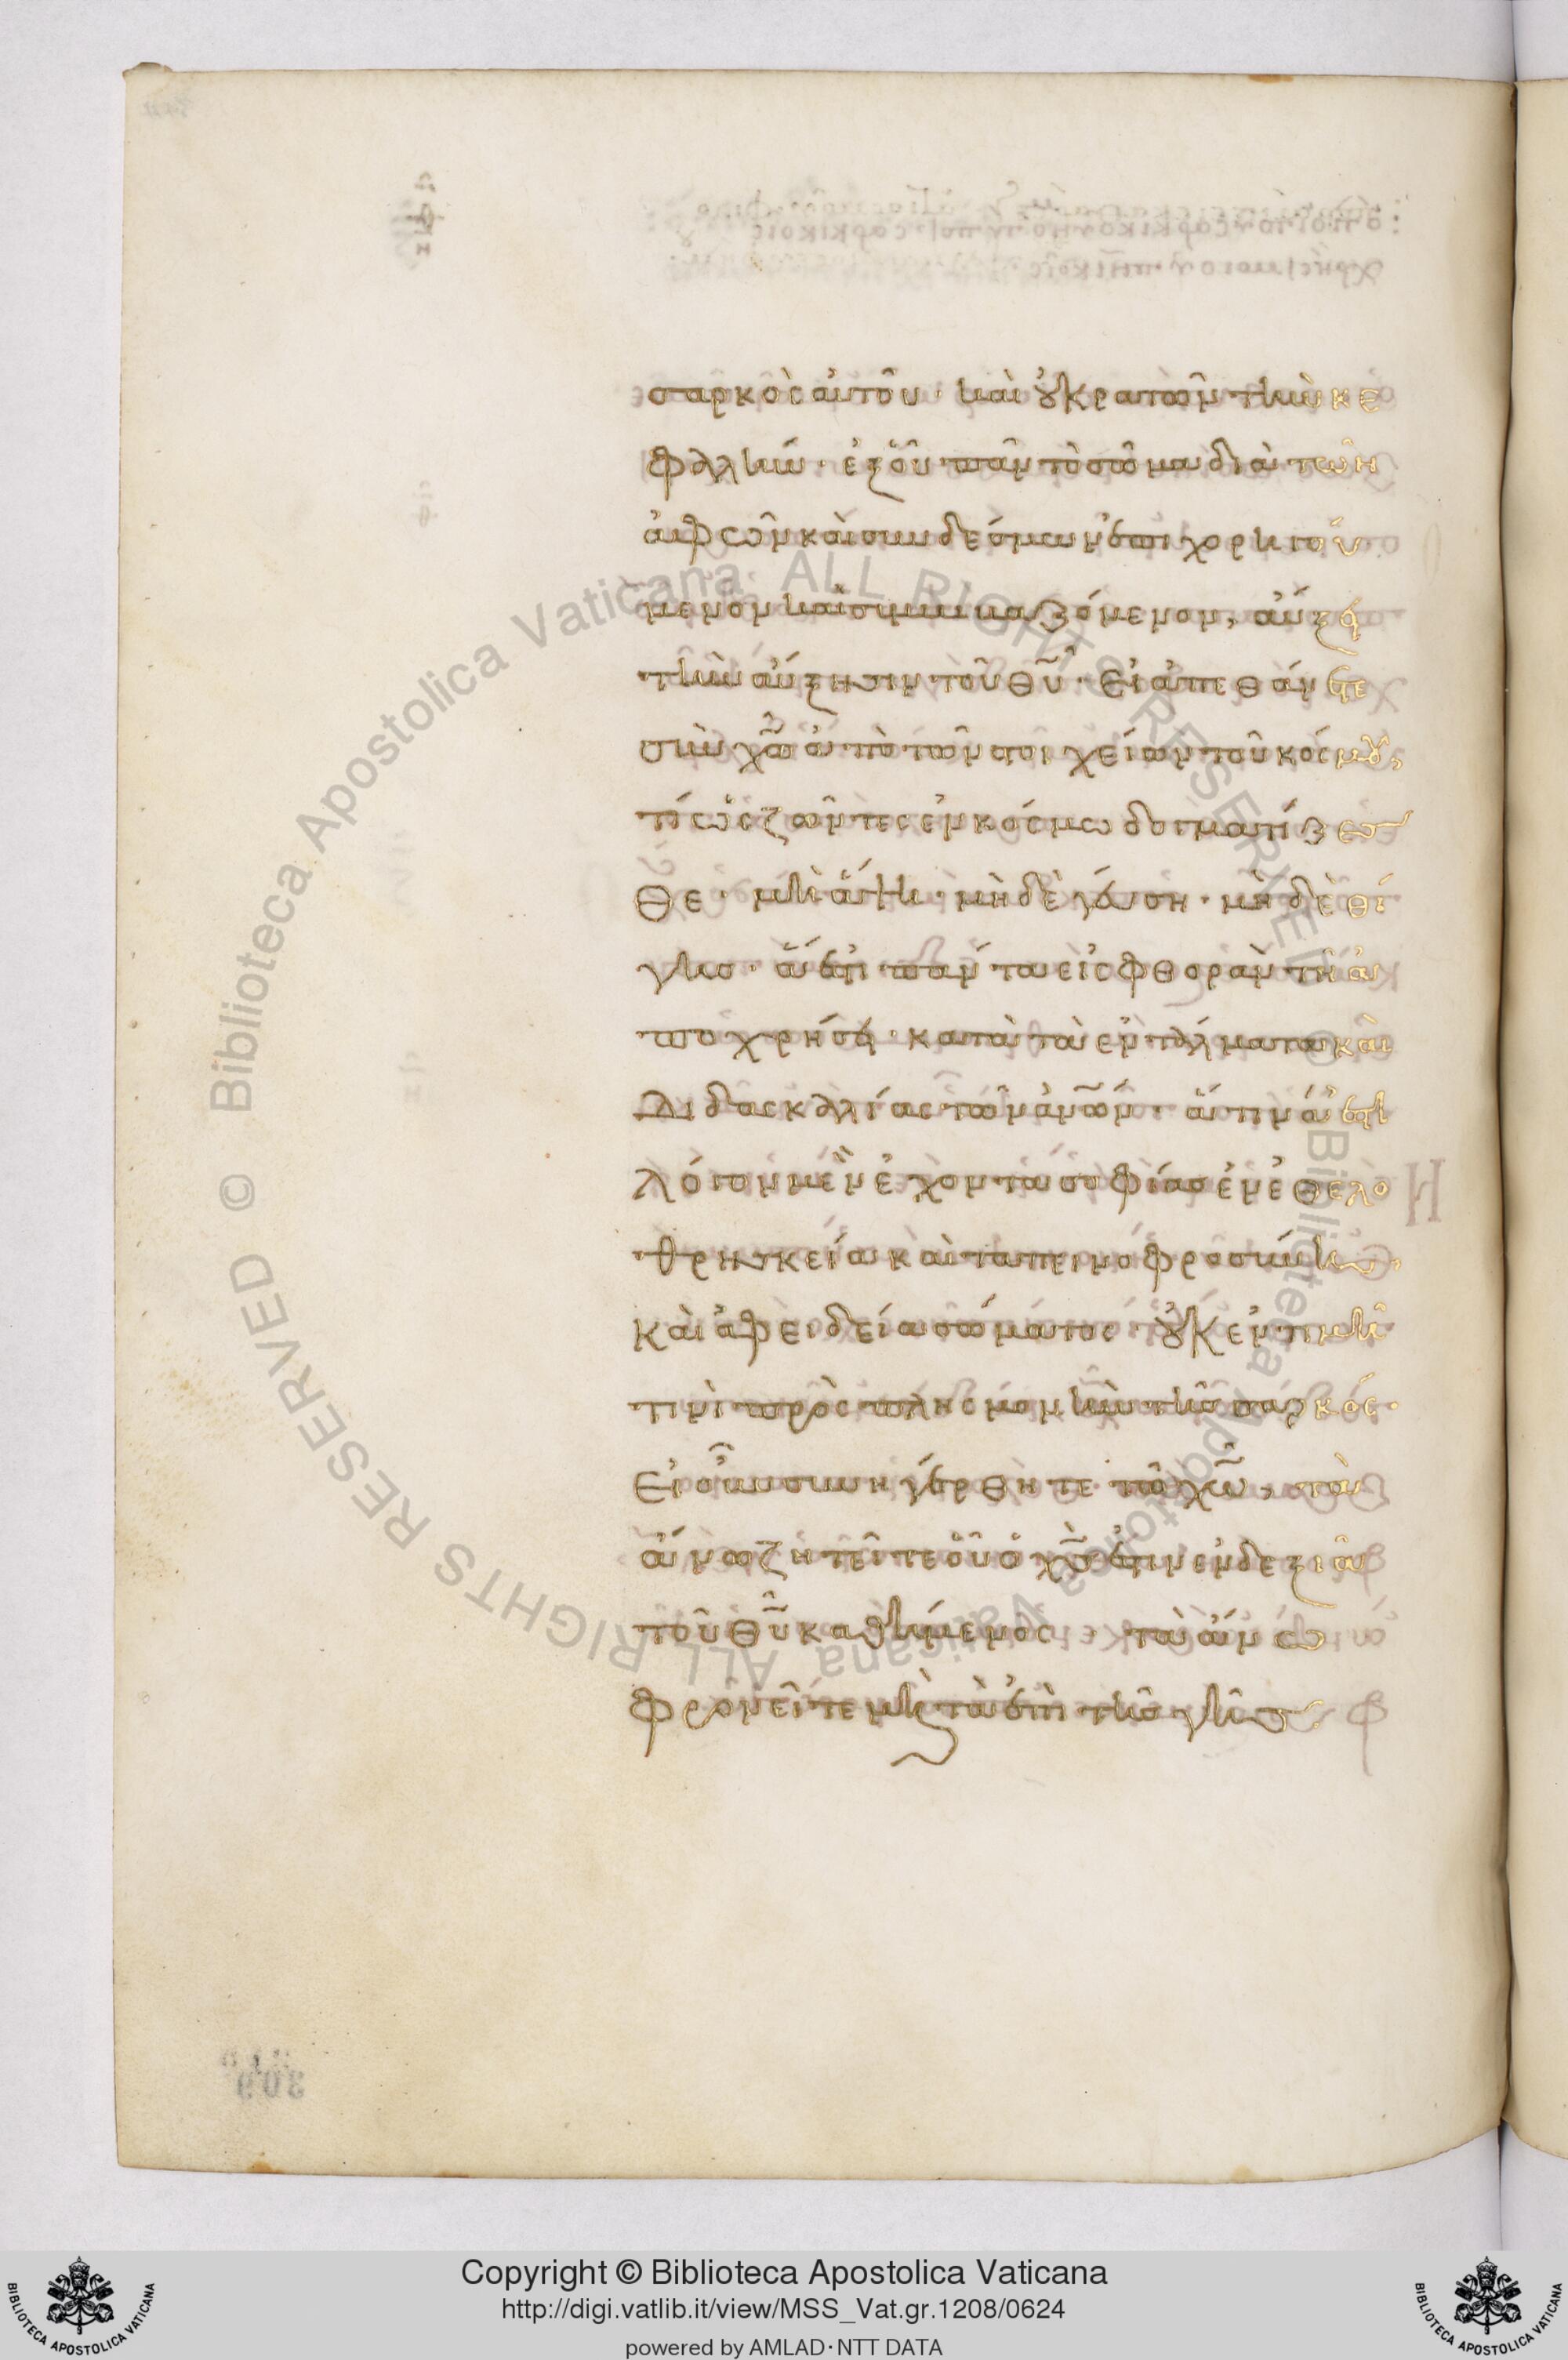 σαρκὸς αὐτοῦ· καὶ οὐ κρατῶν τὴν κε
φαλήν· ἐξ οὗ πᾶν τὸ σῶμα διὰ τῶν
ἁφῶν καὶ συνδέσμων ἐπιχορηγού
μενον καὶ συμβιβαζόμενον, αὔξει
τὴν αὔξησιν τοῦ θ̅υ̅· Εἰ ἀπεθάνετε
σὺν χ̅ω̅ ἀπὸ τῶν στοιχείων τοῦ κόσμου,
τί ὡς ζῶντες ἐν κόσμω δογματίζεσ
θε· μὴ ἅψη· μὴ δὲ γεύση· μὴ δὲ θί
γης· ἅ ἐστι πάντα εἰς φθορὰν τῆ ἀ
ποχρήσει· κατὰ τὰ ἐντάλματα καὶ
διδασκαλίας τῶν ἀ̅ν̅ω̅ν̅· ἅτινά ἐστι
λόγον μὲν ἔχοντα σοφίας ἐν ἐθελο
θρησκεία καὶ ταπεινοφροσύνη,
καὶ ἀφειδεία σώματος· οὐκ ἐν τιμῆ
τινὶ πρὸς πλησμονὴν τῆς σαρκός·
Εἰ οὖν συνηγέρθητε τῶ χ̅ω̅, τὰ
ἄνω ζητεῖτε οὗ ὁ χ̅ς̅ ἐστιν ἐν δεξιᾶ
τοῦ θ̅υ̅ καθήμενος· τὰ ἄνω
φρονεῖτε μὴ τὰ ἐπὶ τῆς γῆς·
309
Biblioteca Apostolica Vaticana ALL RIGHTS RESERVED ©
Biblioteca Apostolica Vaticana ALL RIGHTS RESERVED ©
Copyright © Biblioteca Apostolica Vaticana
http://digi.vatlib.it/view/MSS_Vat.gr.1208/0624
powered by AMLAD·NTT DATA
BIBLIOTECA APOSTOLICA VATICANA
BIBLIOTECA APOSTOLICA VATICANA